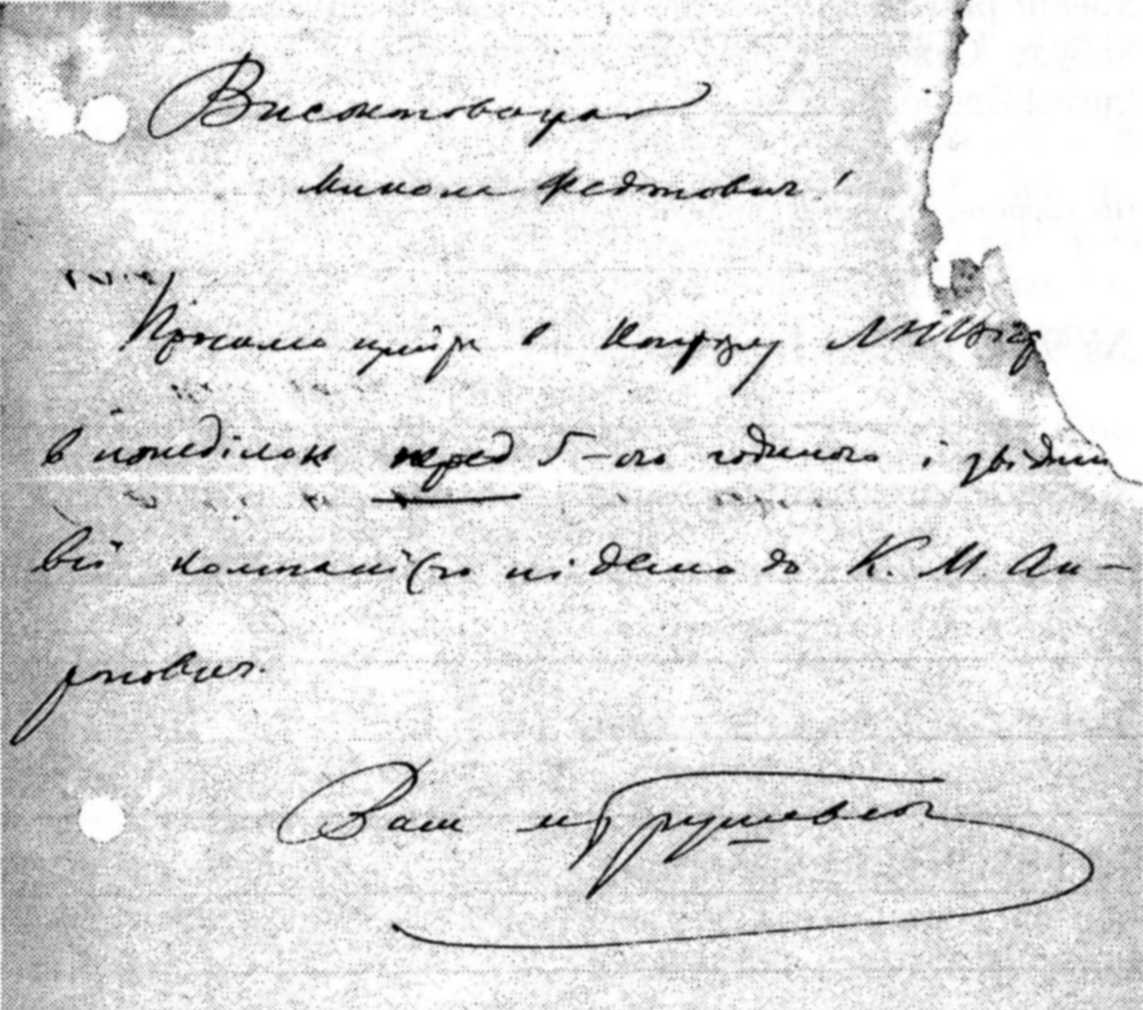 Високоповаж
Микола Федотович!
Просимо в Контору ЛНВіс
в понеділок перед 5-ою годиною і звідти
всі компанією підемо до К. М. Ан-
тонович.
Ваш МГрушевськ